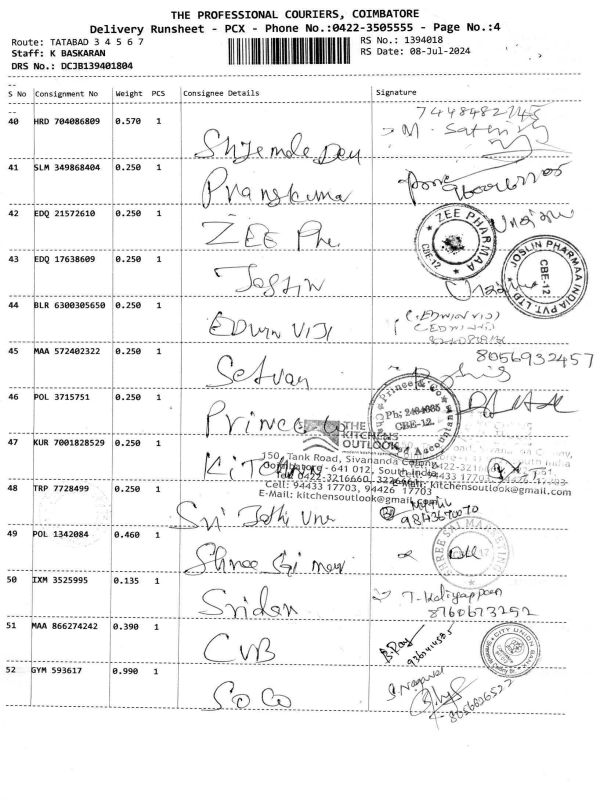 THE PROFESSIONAL COURIERS, COIMBATORE
Delivery Runsheet - PCX - Phone No.:0422-3505555 - Page No.:4
Route: TATABAD 3 4 5 6 7
RS No.: 1394018
Staff: K BASKARAN
RS Date: 08-Jul-2024
DRS No.: DCJB139401804
S No Consignment No Weight PCS Consignee Details Signature
7448482745
40 HRD 704086809 0.570 1
M. Sathish
41 SLM 349868404 0.250 1
42 EDQ 21572610 0.250 1
ZEE Phe
ZEE PHARMAA
CBE-12
43 EDQ 17638609 0.250 1
Joslin
JOSLIN PHARMAA INDIA PVT. LTD
CBE-12
44 BLR 6300305650 0.250 1
EDWIN VIJI
(EDWIN VIJI)
45 MAA 572402322 0.250 1
Selvan
8056932457
46 POL 3715751 0.250 1
Prince Co
Prince & Co
Ph: 2494035
CBE-12.
Chartered Accountants
47 KUR 7001828529 0.250 1
Kitchen
THE KITCHENS OUTLOOK
150, Tank Road, Sivananda Colony
Coimbatore - 641 012, South India
Tel: 0422-3216660, 3226661
Cell: 94433 17703, 94426 17703
E-Mail: kitchensoutlook@gmail.com
48 TRP 7728499 0.250 1
Sri Jothi
9843670070
49 POL 1342084 0.460 1
Shree Sai
SHREE SAI MARKETING
50 IXM 3525995 0.135 1
Sriden
T. Kaliyappan
8760673292
51 MAA 866274242 0.390 1
CUB
CITY UNION BANK
52 GYM 593617 0.990 1
SoCo